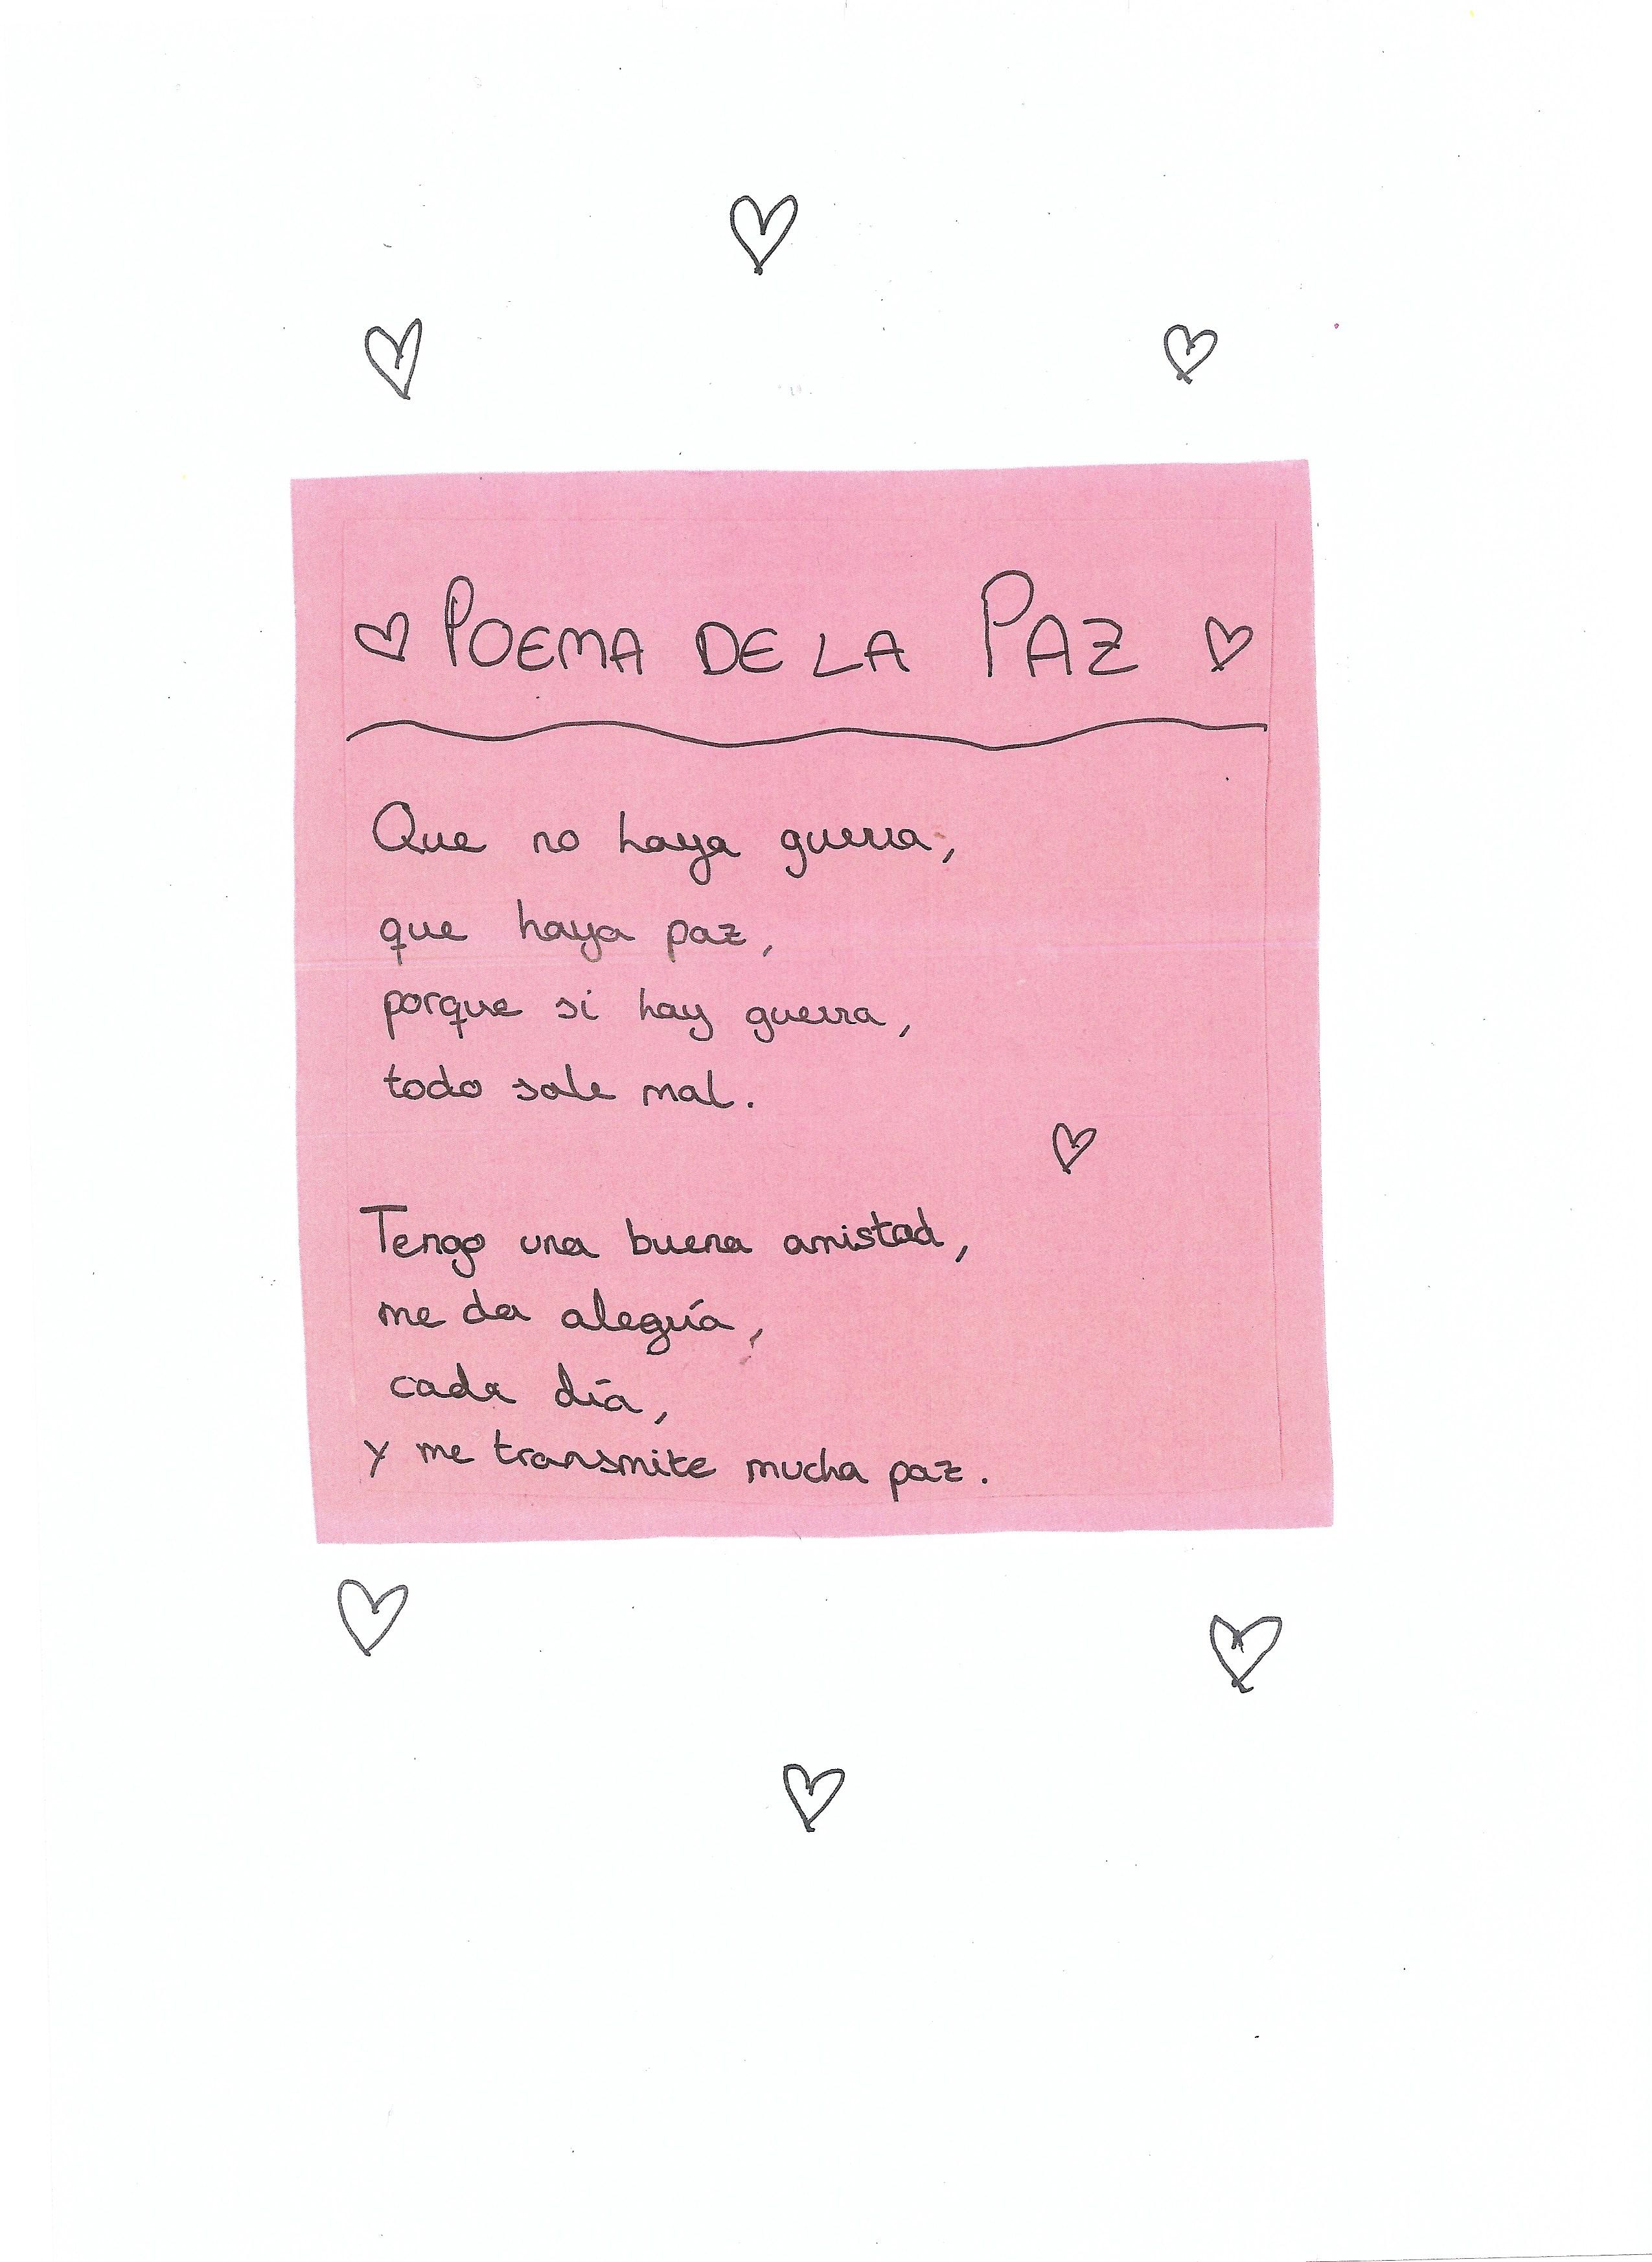 POEMA DE LA PAZ
Que no haya guerra,
que haya paz,
porque si hay guerra,
todo sale mal.
Tengo una buena amistad,
me da alegría,
cada día,
y me transmite mucha paz.